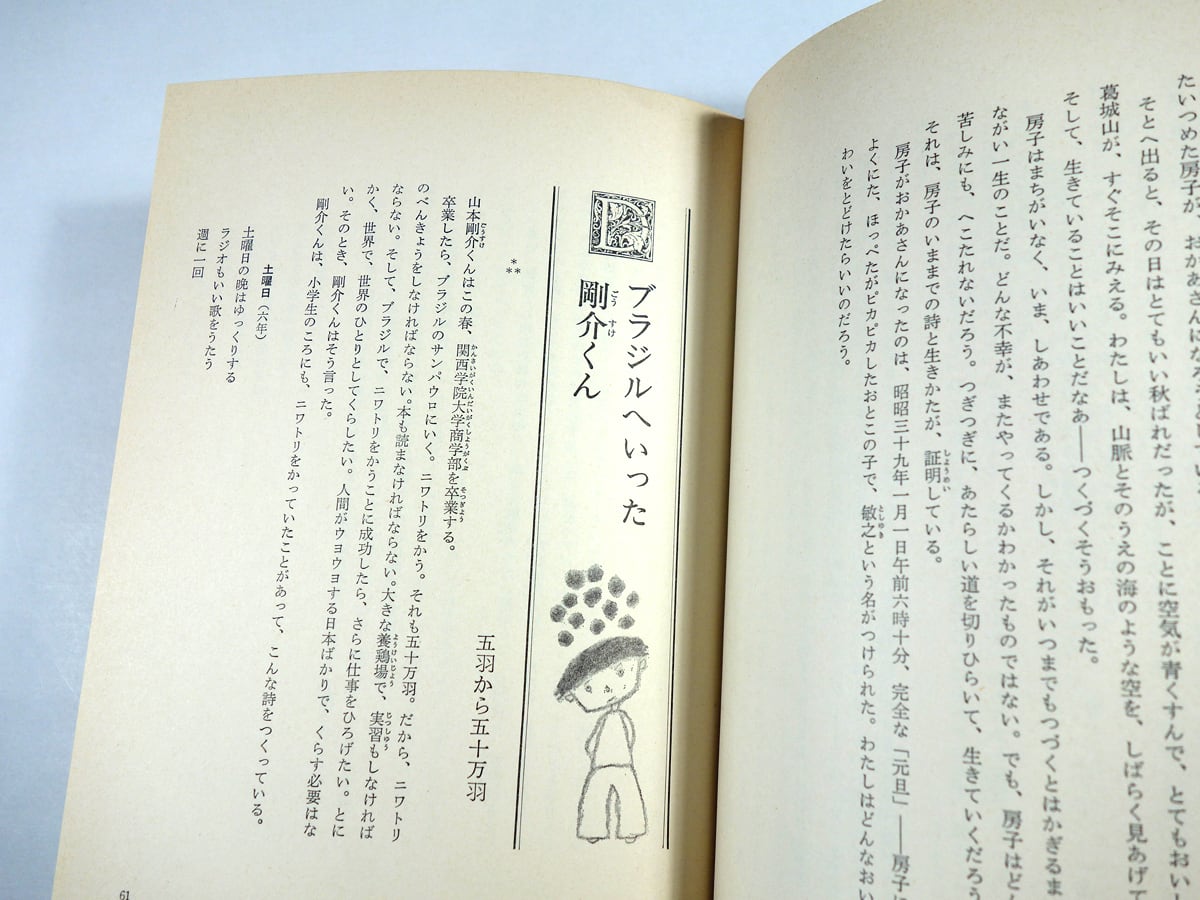 たいつめた房子が、おかあさんになろ
そとへ出ると、その日はとてもいい秋ばれだったが、ことに空気が青くすんで、とてもおいし
葛城山が、すぐそこにみえる。わたしは、山脈とそのうえの海のような空を、しばらく見あげて
そして、生きていることはいいことだなあ――つくづくそうおもった。
房子はまちがいなく、いま、しあわせである。しかし、それがいつまでもつづくとはかぎるま
ながい一生のことだ。どんな不幸が、またやってくるかわかったものではない。でも、房子はどん
苦しみにも、へこたれないだろう。つぎつぎに、あたらしい道を切りひらいて、生きていくだろう
それは、房子のいままでの詩と生きかたが、証明している。
房子がおかあさんになったのは、昭昭三十九年一月一日午前六時十分、完全な「元旦」――房子に
よくにた、ほっぺたがピカピカしたおとこの子で、敏之という名がつけられた。わたしはどんなおい
わいをとどけたらいいのだろう。
ブラジルへいった
剛介くん
五羽から五十万羽
***
山本剛介くんはこの春、関西学院大学商学部を卒業する。
卒業したら、ブラジルのサンパウロにいく。ニワトリをかう。それも五十万羽。だから、ニワトリ
のべんきょうをしなければならない。本も読まなければならない。大きな養鶏場で、実習もしなければ
ならない。そして、ブラジルで、ニワトリをかうことに成功したら、さらに仕事をひろげたい。とに
かく、世界で、世界のひとりとしてくらしたい。人間がウヨウヨする日本ばかりで、くらす必要はな
い。そのとき、剛介くんはそう言った。
剛介くんは、小学生のころにも、ニワトリをかっていたことがあって、こんな詩をつくっている。
土曜日(六年)
土曜日の晩はゆっくりする
ラジオもいい歌をうたう
週に一回
61